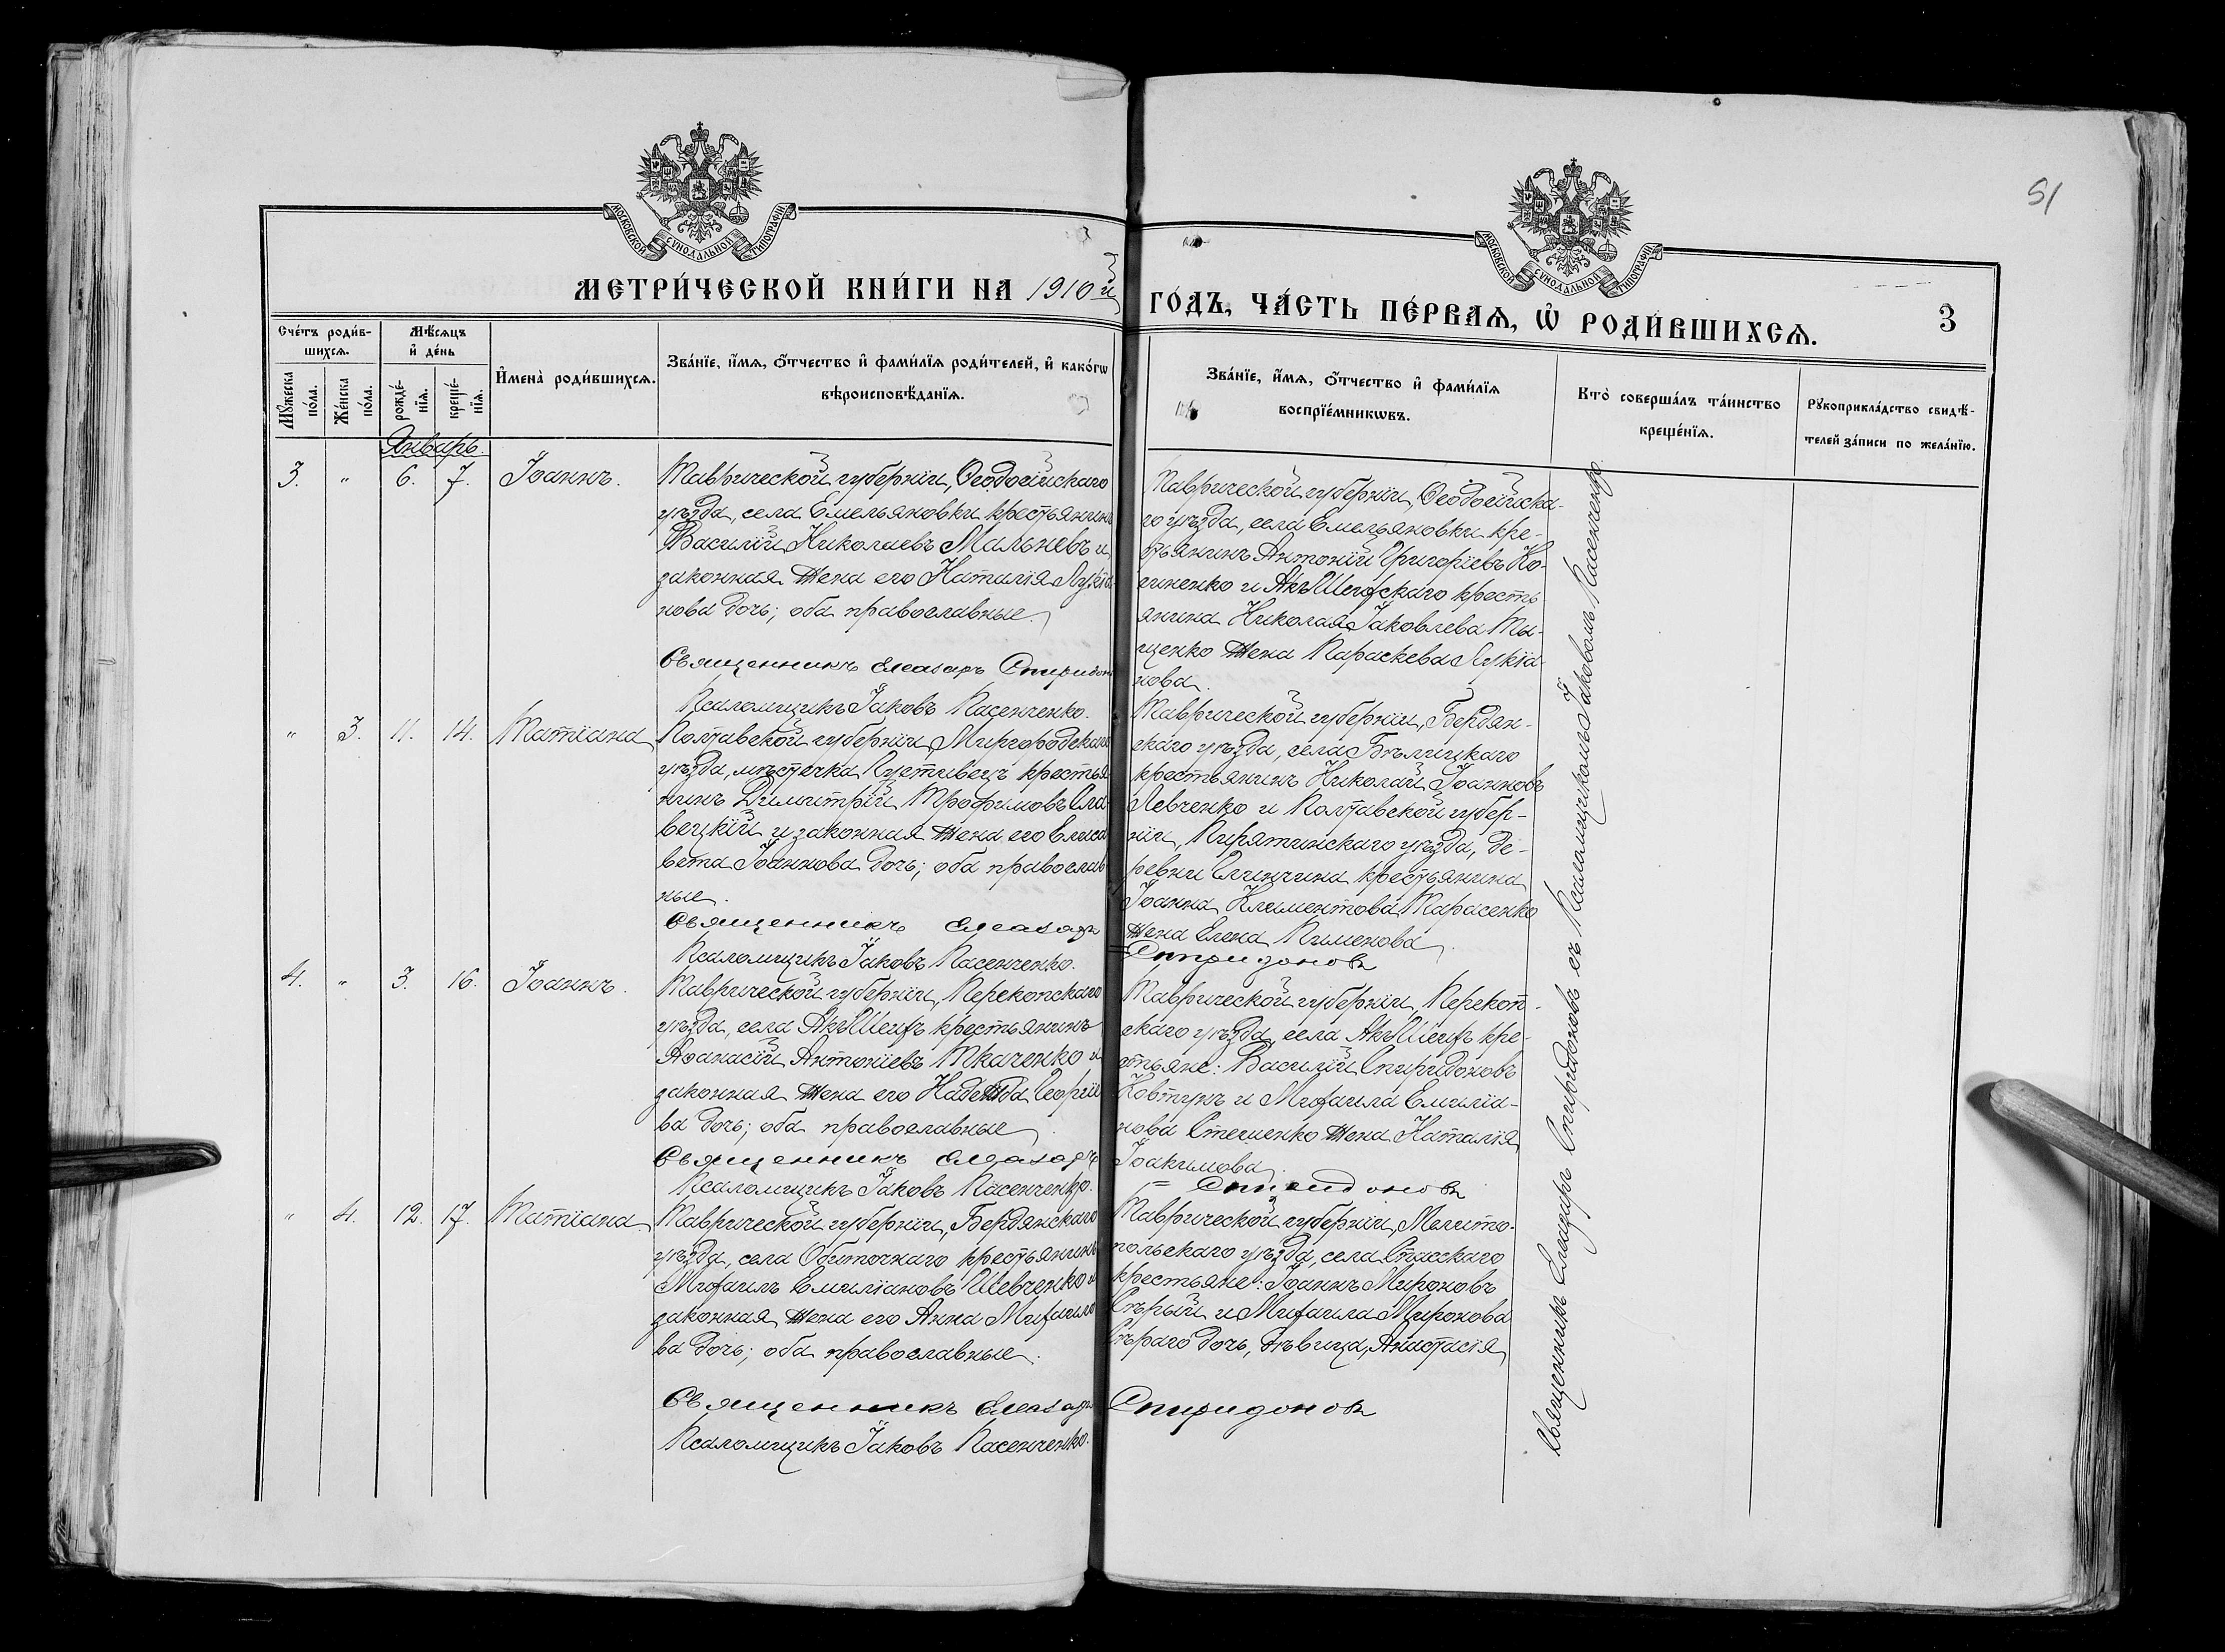 51
МОСКОВСКОЙ СѴНОДАЛЬНОЙ ТИПОГРАФІИ
МОСКОВСКОЙ СѴНОДАЛЬНОЙ ТИПОГРАФІИ
МЕТРИ́ЧЕСКОЙ КНИ́ГИ НА 1910й
ГО́ДЪ, ЧА́СТЬ ПЕ́РВАѦ, Ѿ РОДИ́ВШИХСѦ.
3
Сче́тъ роди́в-
шихсѧ.
Мꙋ́жеска
по́ла.
Же́нска
по́ла.
Мѣ́сѧцъ
и҆ де́нь
рожде́-
нїѧ.
креще́-
нїѧ.
И҆мена̀ роди́вшихсѧ.
Зва́нїе, и҆́мѧ, ѻ҆́тчество и҆ фами́лїѧ роди́телей, и҆ како́гѡ
вѣроисповѣ́данїѧ.
Зва́нїе, и҆́мѧ, ѻ҆́тчество и҆ фами́лїѧ
воспрїе́мникѡвъ.
Кто̀ соверша́лъ та́инство
креще́нїѧ.
Рꙋкоприкла́дство свидѣ́-
телей за́писи по жела́нїю.
Январь.
3. " 6. 7. Іоаннъ.
Таврической губерніи, Ѳеодосійскаго
уѣзда, села Емельяновки крестьянинъ
Василій Николаевъ Мальневъ и
законная жена его Наталія Лукіа-
нова дочь; оба православные.
Священникъ Елеазаръ Спиридоновъ
Псаломщикъ Іаковъ Пасенченко.
Таврической губерніи, Ѳеодосійска-
го уѣзда, села Емельяновки кре-
стьянинъ Антоній Григоріевъ Ко-

и Акъ Шейхскаго кресть
янина Николая Іаковлева
жена Параскева Лукіа-
нова.
" 3. 11. 14. Татіана
Полтавской губерніи, Миргородскаго
уѣзда, мѣстечка крестья
нинъ Димитрій Трофимовъ Сла-
вецкій и законная жена его Елиса
вета Іоаннова дочь; оба православ
ные.
Священникъ Елеазаръ
Псаломщикъ Іаковъ Пасенченко.
Таврической губерніи, Бердян-
скаго уѣзда, села
крестьянинъ Николай Іоанновъ
Левченко и Полтавской губер-
ніи, Пирятинскаго уѣзда, де-
ревни крестьянина
Іоанна Климентова Тарасенко
жена Елена Пименова
Спиридоновъ
4. " 3. 16. Іоаннъ.
Таврической губерніи, Перекопскаго
уѣзда, села Акъ Шейхъ крестьянинъ
Аѳанасій Антоніевъ Ткаченко и
законная жена его Надежда Георгіе
ва дочь; оба православные.
Священникъ Елеазаръ
Псаломщикъ Іаковъ Пасенченко.
Таврической губерніи, Перекоп-
скаго уѣзда, села Акъ Шейхъ кре-
стьяне: Василій Спиридоновъ
Ковтунъ и Михаила Емиліа-
нова Стеценко жена Наталія
Іоакимова
= Спиридоновъ
" 4. 12. 17. Татіана
Таврической губерніи, Бердянскаго
уѣзда, села Обиточнаго крестьянинъ
Михаилъ Емиліановъ Шевченко и
законная жена его Анна Михаило
ва дочь; оба православные.
Священникъ Елеазаръ
Псаломщикъ Іаковъ Пасенченко.
Таврической губерніи, Мелито-
польскаго уѣзда, села Спасскаго
крестьяне: Іоаннъ Мироновъ
Сѣрый и Михаила Миронова
Сѣраго дочь, дѣвица, Анастасія
Спиридоновъ
Священникъ Елеазаръ Спиридоновъ съ Псаломщикомъ Іаковомъ Пасенченко.